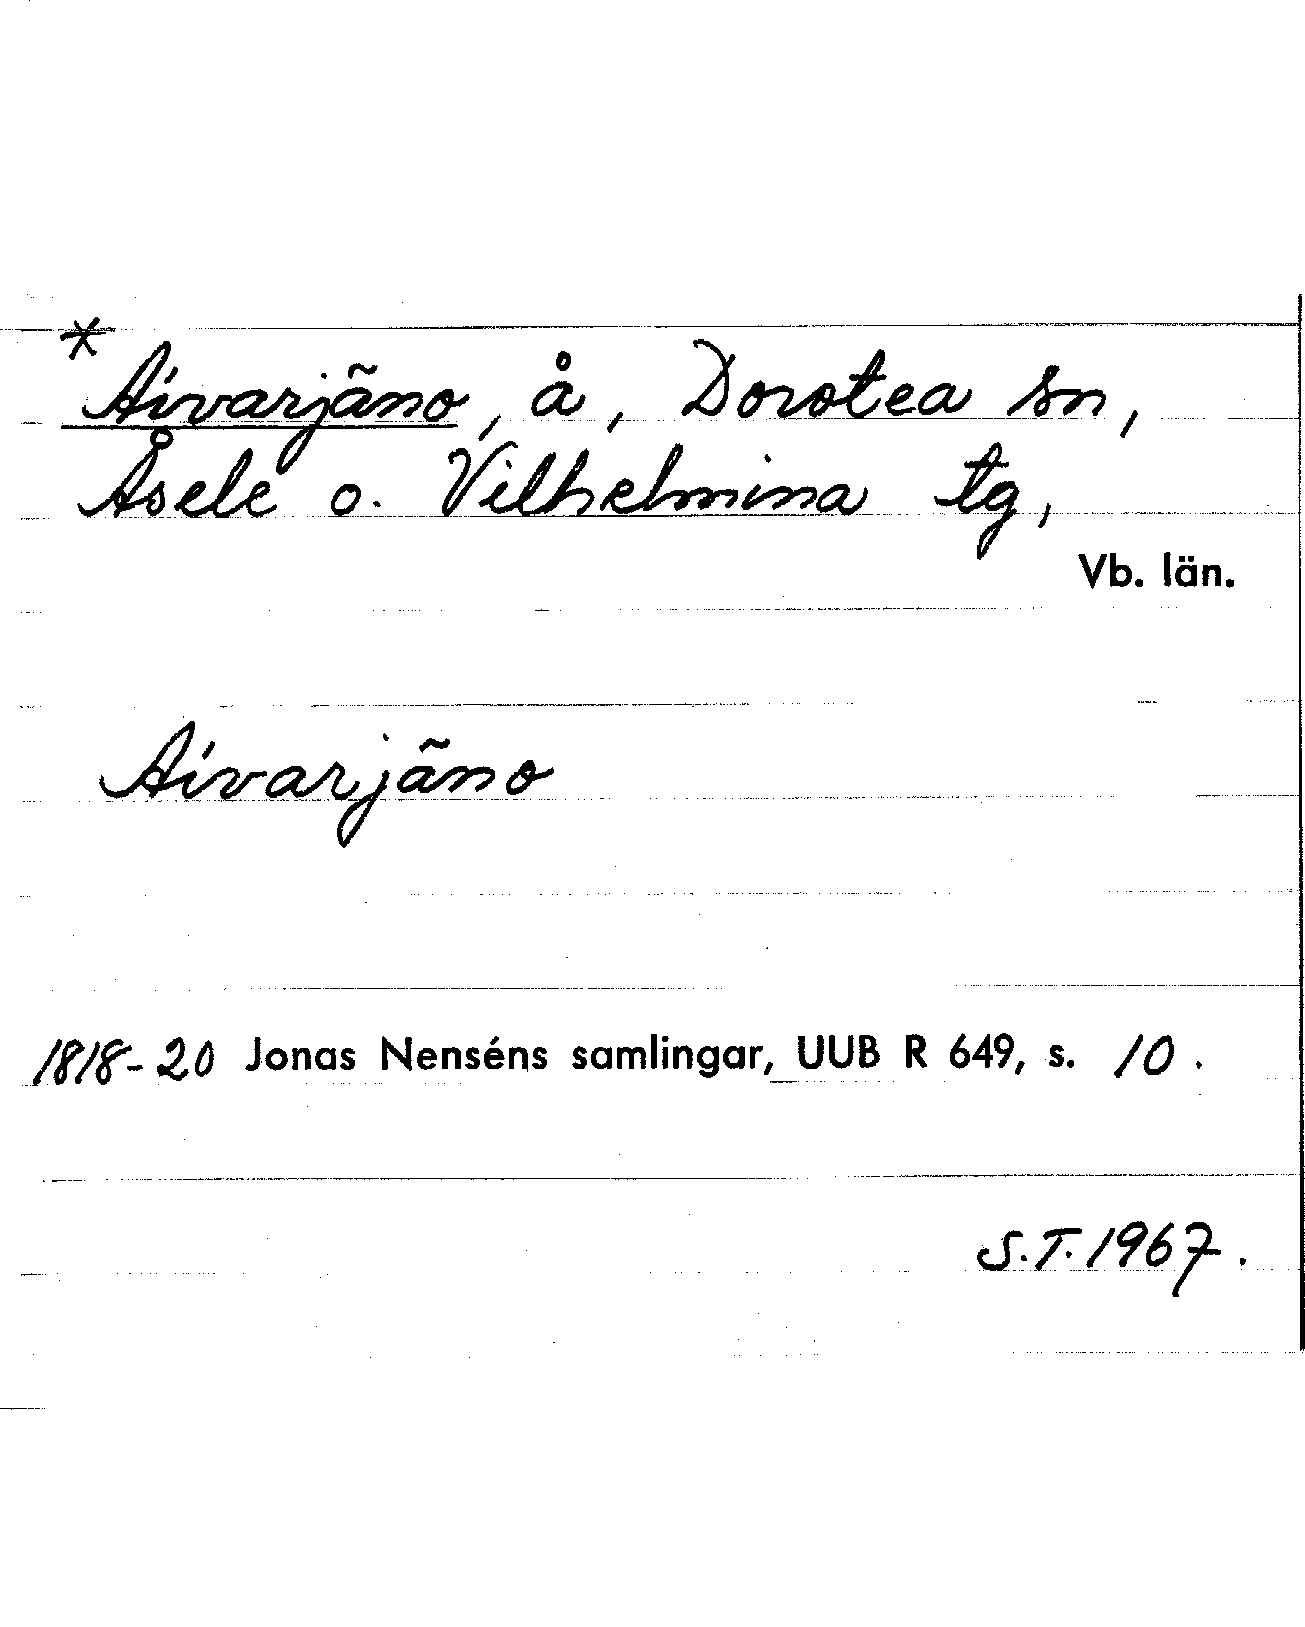 *
Aivarjäno, å, Dorotea sn,
Åsele o. Vilhelmina tg,
Vb. län.
Aivarjäno
1818-20 Jonas Nenséns samlingar, UUB R 649, s. 10.
S.T. 1967.